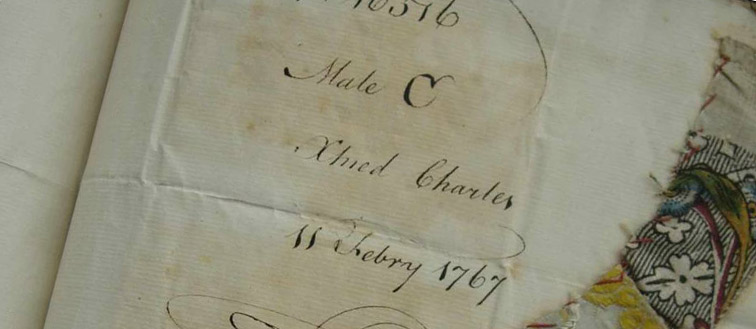 16516
Male C
Xhned Charles
11 Febry 1767